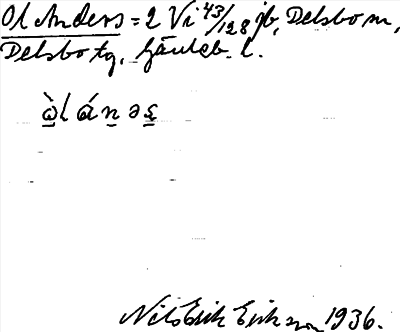 Ol Anders = 2 Vi 43/128 jb, Delsbo sn,
Delsbo tg, Gävleb. l.
ὼl án̲əs̲
Nils Erik Eriksson 1936.